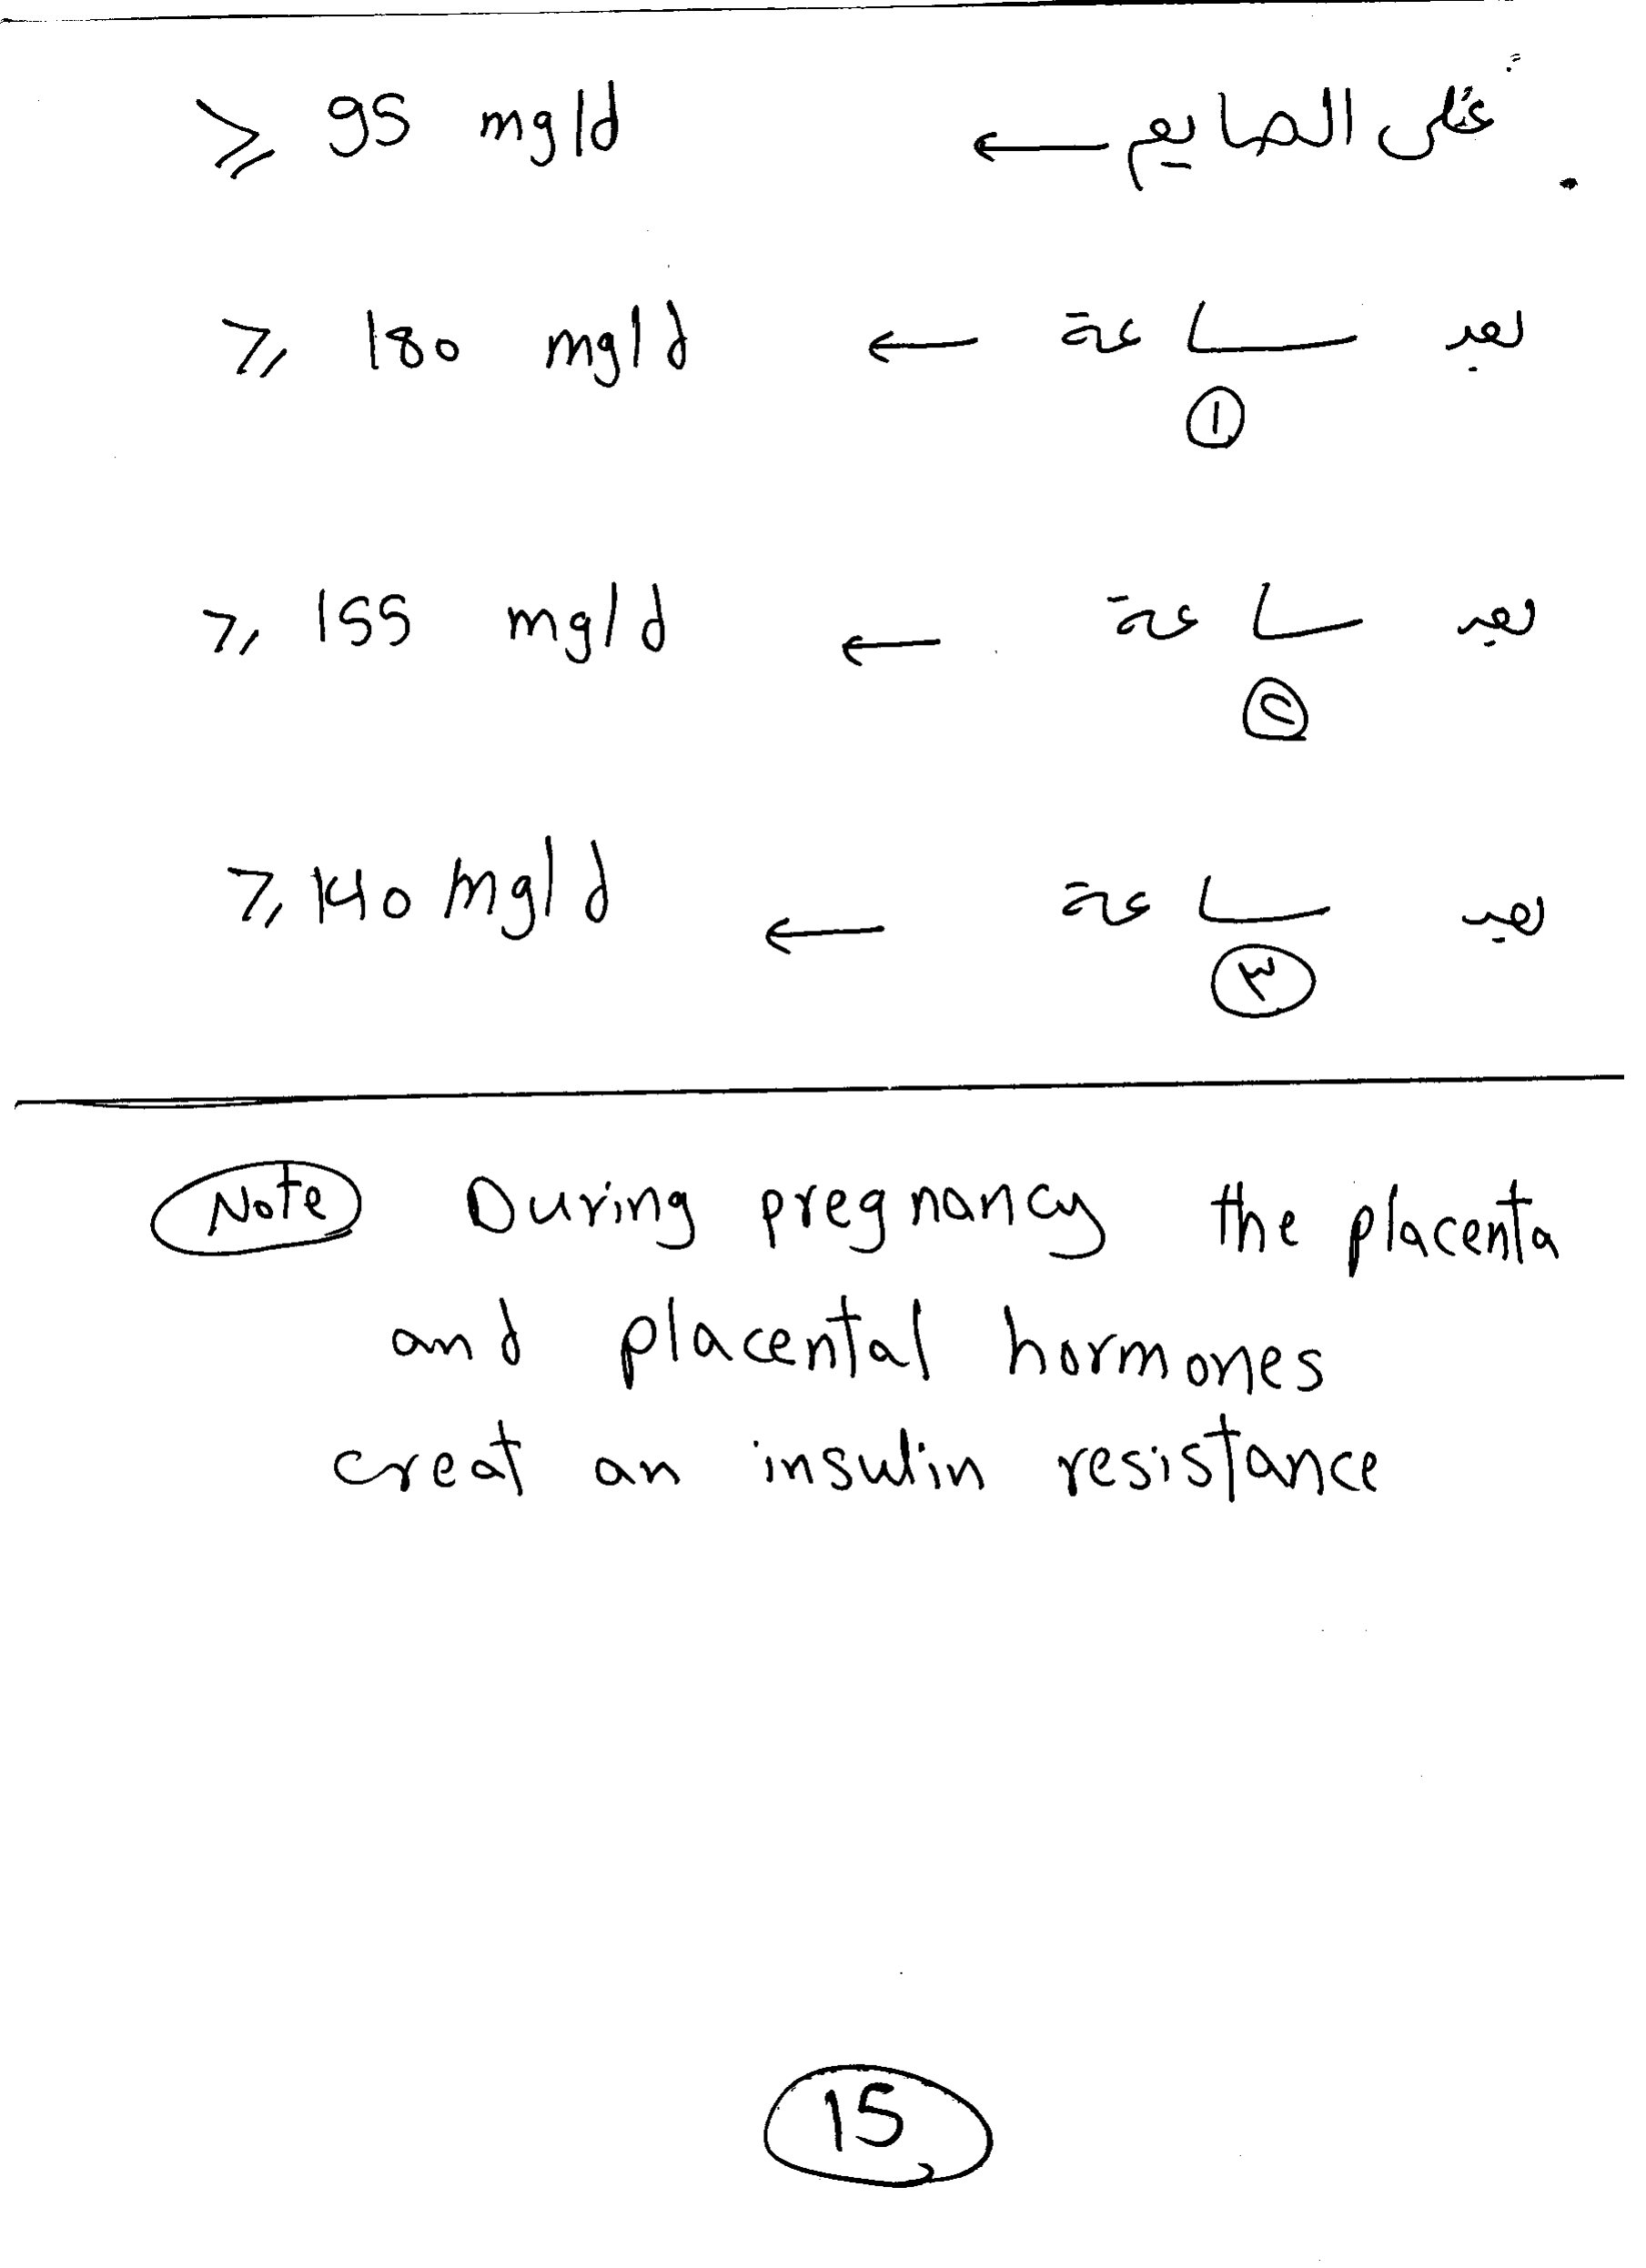 على الصايم ← ≥ 95 mg/d
بعد ساعة ← ≥ 180 mg/d
①
بعد ساعة ← ≥ 155 mg/d
٢
بعد ساعة ← ≥ 140 mg/d
٣
Note During pregnancy the placenta
and placental hormones
creat an insulin resistance
15